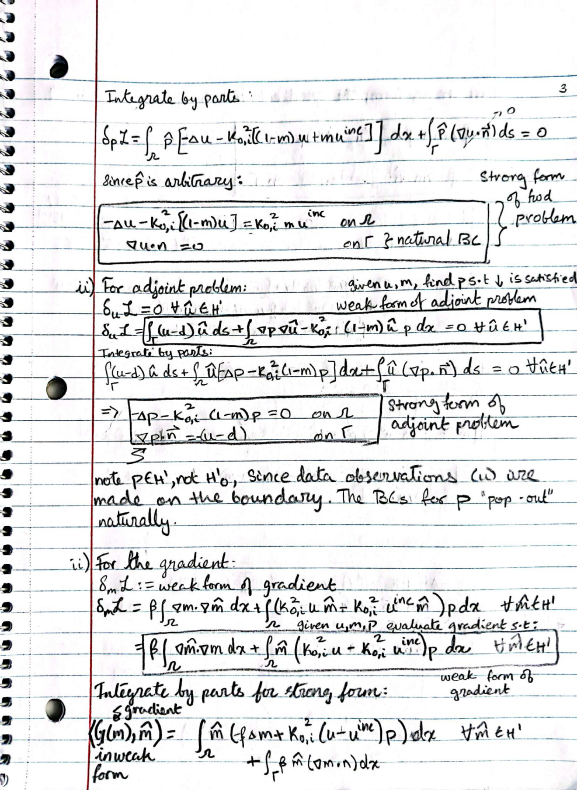 3
Integrate by parts:
δpL = ∫_Ω p̂ [-Δu - K²_{0,i}[(1-m)u + mu^{inc}]] dx + ∫_Γ p̂ (∇u·n⃗) ds = 0
→0
Since p̂ is arbitrary:
-Δu - K²_{0,i}[(1-m)u] = K²_{0,i} m u^{inc} on Ω
∇u·n = 0 on Γ } natural BC
Strong form
of fwd
problem
ii) For adjoint problem: given u, m, find p s.t ↓ is satisfied
δuL = 0 ∀ û ∈ H' weak form of adjoint problem
δuL = ∫_Γ (u-d) û ds + ∫_Ω ∇p ∇û - K²_{0,i} (1-m) û p dx = 0 ∀ û ∈ H'
Integrate by parts:
∫_Γ (u-d) û ds + ∫_Ω û [-Δp - K²_{0,i} (1-m) p] dx + ∫_Γ û (∇p·n⃗) ds = 0 ∀ û ∈ H'
=> -Δp - K²_{0,i} (1-m) p = 0 on Ω
∇p·n⃗ = -(u-d) on Γ
Strong form of
adjoint problem
note p ∈ H', not H'₀, since data observations (u) are
made on the boundary. The BCs for p "pop-out"
naturally.
ii) For the gradient:
δmL := weak form of gradient
δmL = β ∫_Ω ∇m·∇m̂ dx + ∫_Ω (K²_{0,i} u m̂ - K²_{0,i} u^{inc} m̂) p dx ∀ m̂ ∈ H'
given u, m, p evaluate gradient s.t:
= β ∫_Ω ∇m̂·∇m dx + ∫_Ω m̂ (K²_{0,i} u - K²_{0,i} u^{inc}) p dx ∀ m̂ ∈ H'
weak form of
gradient
Integrate by parts for strong form:
gradient
(G(m), m̂) = ∫_Ω m̂ (-βΔm + K²_{0,i} (u - u^{inc}) p) dx ∀ m̂ ∈ H'
in weak
form
+ ∫_Γ β m̂ (∇m·n) dx